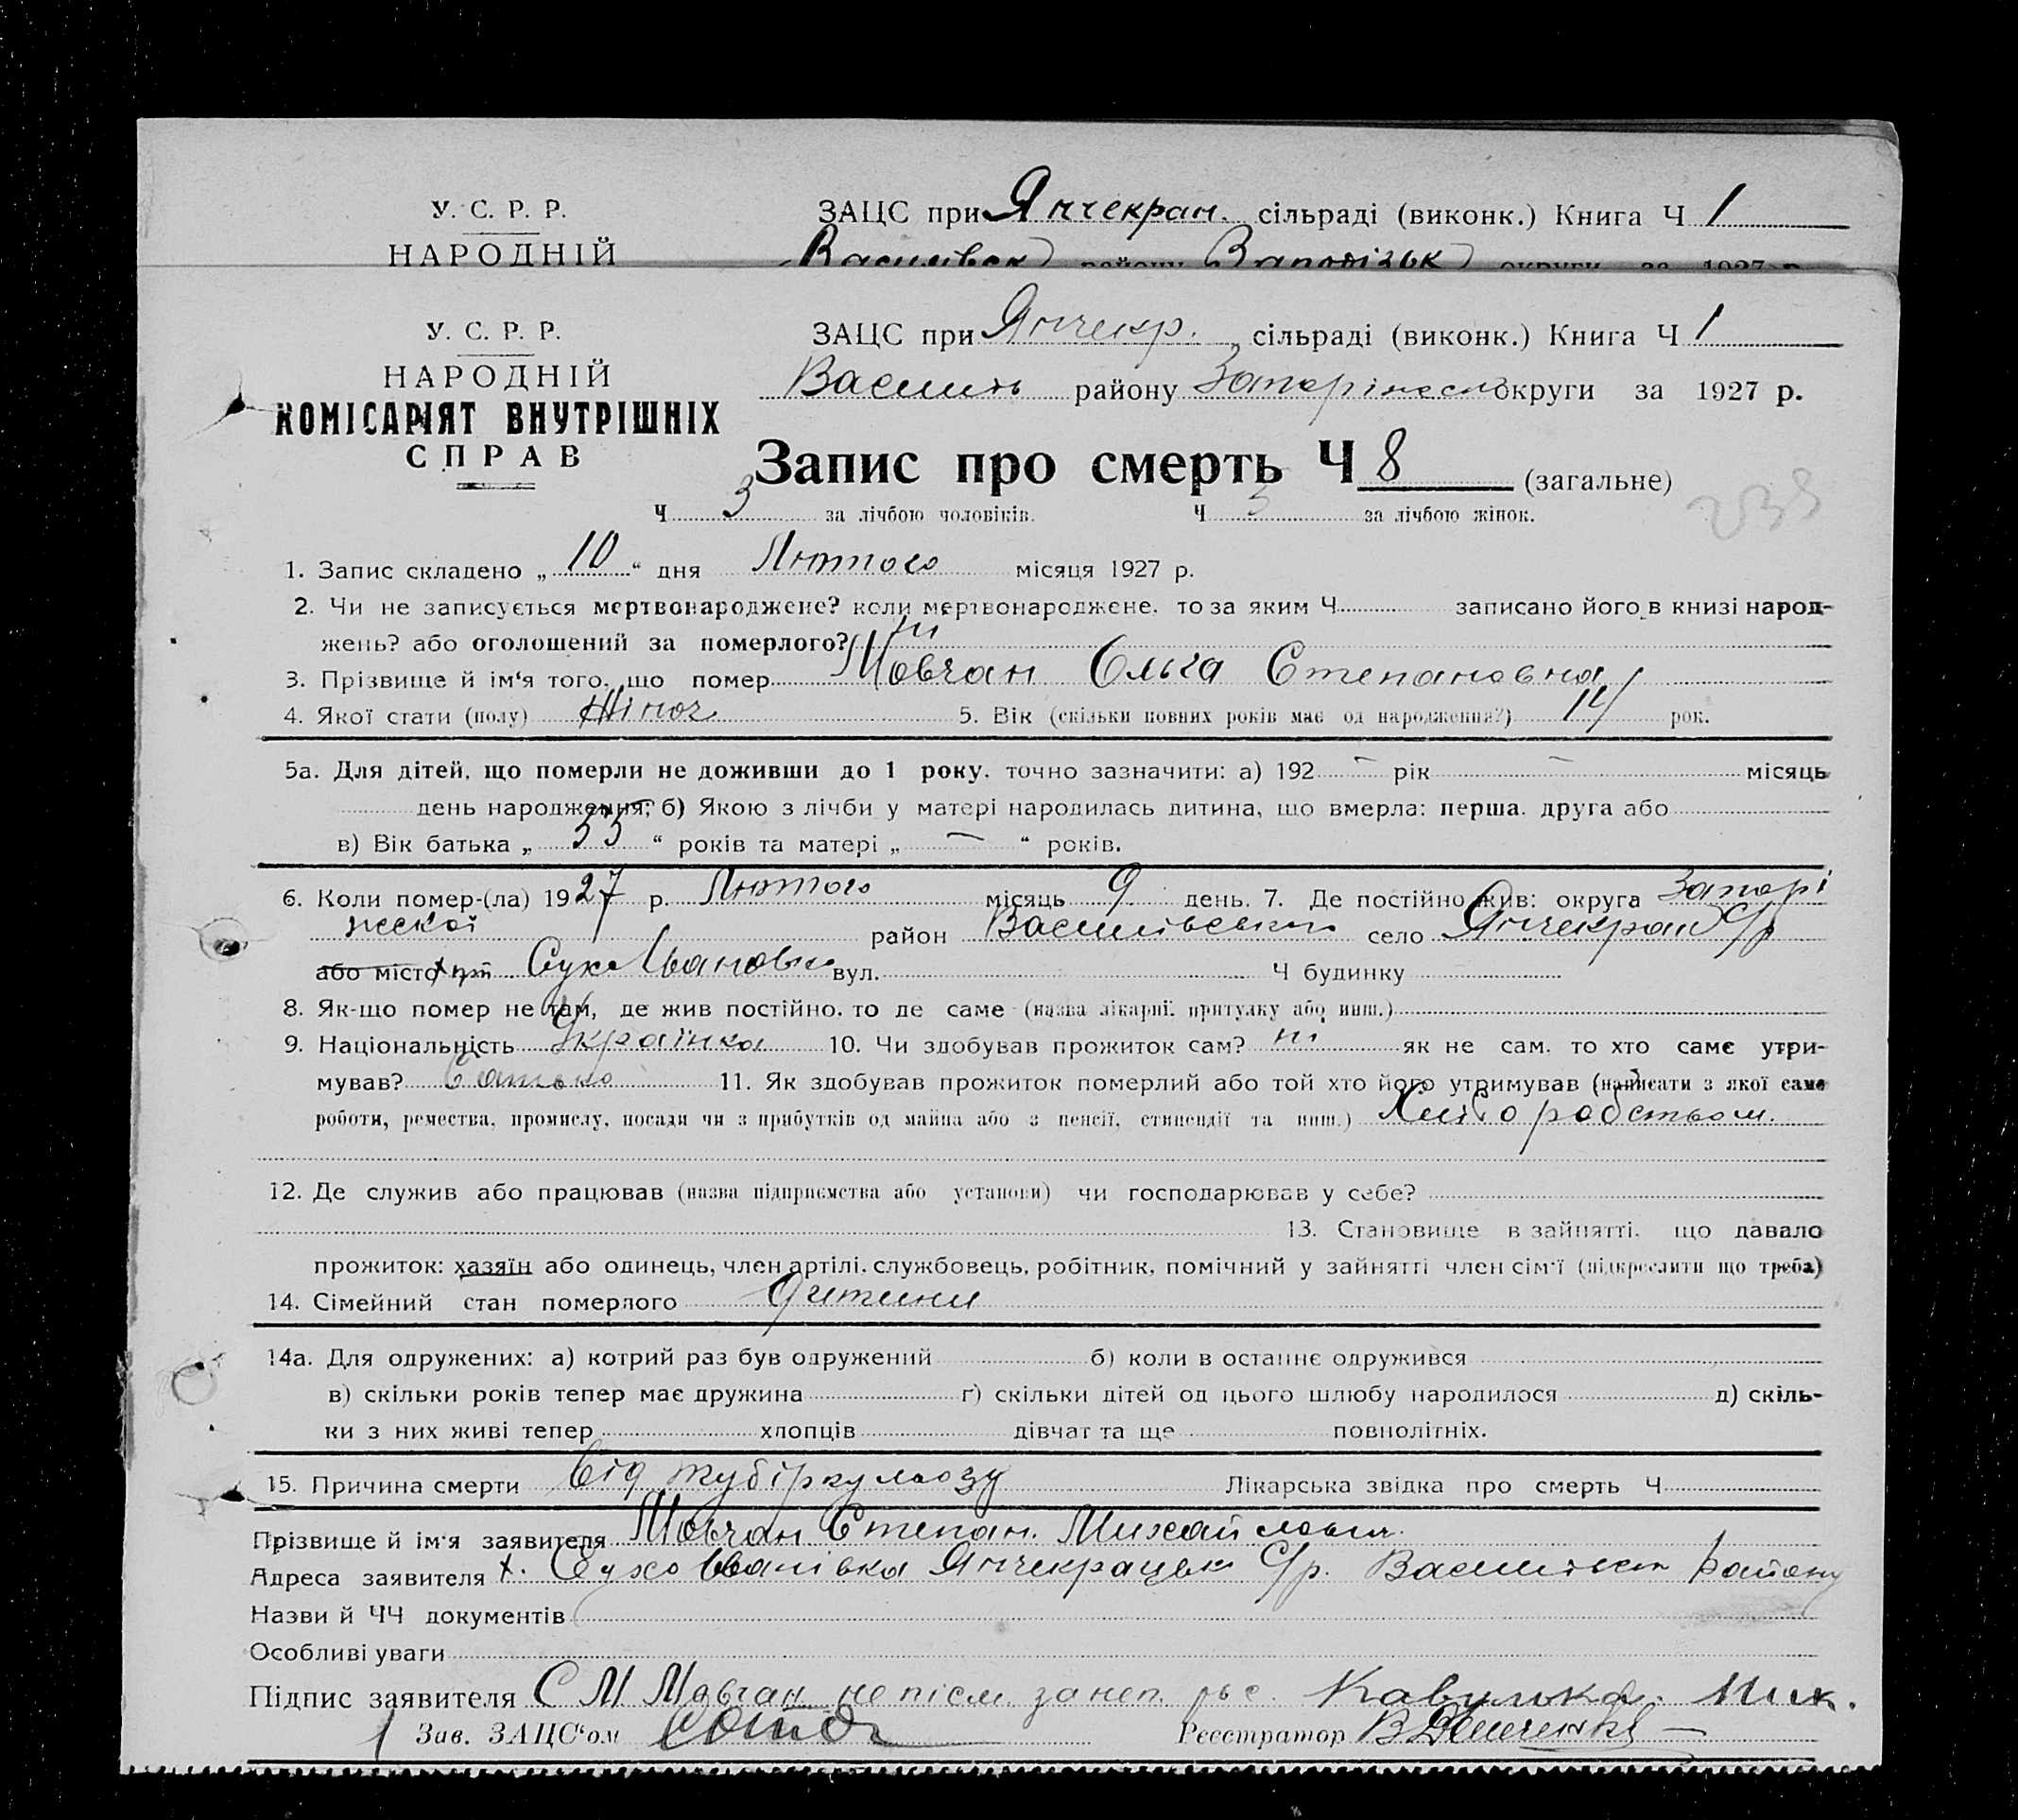 У. С. Р. Р. ЗАЦС при Янчекран. сільраді (виконк.) Книга Ч 1
НАРОДНІЙ Василівськ району Запорізьк округи за 1927 р.
У. С. Р. Р. ЗАЦС при Янчекр. сільраді (виконк.) Книга Ч 1
НАРОДНІЙ Василів району округи за 1927 р.
КОМІСАРІЯТ ВНУТРІШНІХ
СПРАВ Запис про смерть Ч 8 (загальне)
Ч 3 за лічбою чоловіків. Ч 5 за лічбою жінок.
1. Запис складено „ 10 “ дня Лютого місяця 1927 р.
2. Чи не записується мертвонароджене? коли мертвонароджене, то за яким Ч записано його в книзі народ-
жень? або оголошений за померлого? ні
3. Прізвище й ім'я того, що помер Мовчан Ольга Степановна
4. Якої стати (полу) Жіноч 5. Вік (скільки повних років має од народження?) 14 рок.
5а. Для дітей, що померли не доживши до 1 року, точно зазначити: а) 192 – рік – місяць
– день народження; б) Якою з лічби у матері народилась дитина, що вмерла: перша, друга або
в) Вік батька „ 55 “ років та матері „ – “ років.
6. Коли помер-(ла) 1927 р. Лютого місяць 9 день. 7. Де постійно жив: округа Запорі
жской район Василівський село Янчекрак С/р
або місто хут Сухо Івановка вул. Ч будинку
8. Як-що помер не там, де жив постійно, то де саме (назва лікарні, притулку або инш.)
9. Національність Українка 10. Чи здобував прожиток сам? ні як не сам, то хто саме утри-
мував? батько 11. Як здобував прожиток померлий або той хто його утримував (написати з якої саме
роботи, ремества, промислу, посади чи з прибутків од майна або з пенсії, стипендії та инш.) Хліборобством.
12. Де служив або працював (назва підприємства або установи) чи господарював у себе?
13. Становище в зайнятті, що давало
прожиток: хазяїн або одинець, член артілі, службовець, робітник, помічний у зайнятті член сім'ї (підкреслити що треба)
14. Сімейний стан померлого дитина
14а. Для одружених: а) котрий раз був одружений б) коли в останнє одружився
в) скільки років тепер має дружина ґ) скільки дітей од цього шлюбу народилося д) скіль-
ки з них живі тепер хлопців дівчат та ще повнолітніх.
15. Причина смерти Від тубіркульозу Лікарська звідка про смерть Ч
Прізвище й ім'я заявителя Мовчан Степан. Михайлович.
Адреса заявителя х. Сухо Іванівка Янчекрацьк С/р. Василівськ району
Назви й ЧЧ документів
Особливі уваги
Підпис заявителя С М Мовчан непісм. Мик.
1 Зав. ЗАЦС'ом Реєстратор